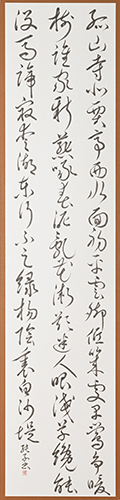 孤山寺北賈亭西水面初平雲腳低幾處早鶯爭暖
樹誰家新燕啄春泥亂花漸欲迷人眼淺草纔能
沒馬蹄最愛湖東行不足綠楊陰裏白沙堤